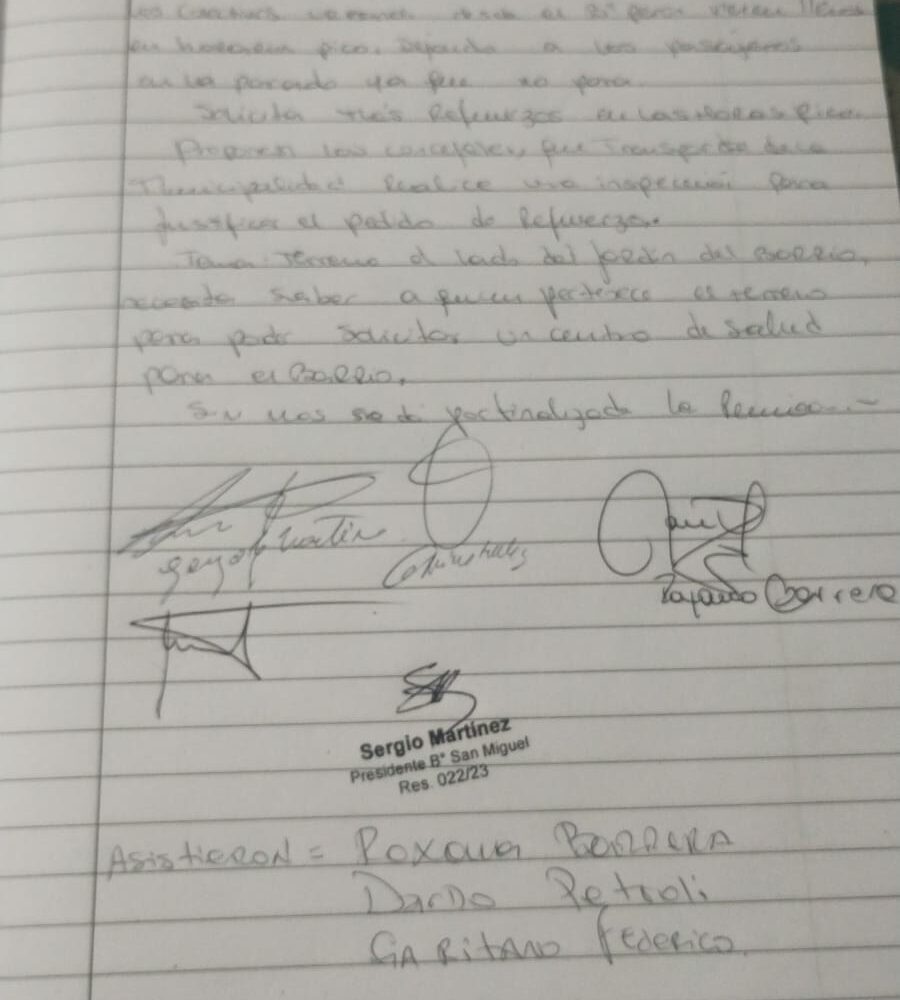 los desde el B° para llenos
en pico. Dejando a los pasajeros
en la parada ya que no para
Solicita más Refuerzos en las Horas Pico.
Proponen los concejales, que Transporte de la
Municipalidad Realice una inspección para
justificar el pedido de Refuerzo.
Tema: Terreno al lado del jardín del BARRIO,
saber a quien pertenece el terreno
para poder solicitar un centro de salud
para el BARRIO.
Sin mas se da por finalizada la Reunion.-
Martin
Sergio Martínez
Presidente B° San Miguel
Res. 022/23
ASistieron = Roxana BARRERA
DarDo Petroli
GARITANO Federico